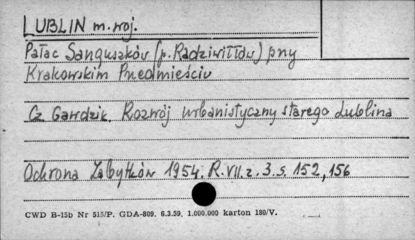 LUBLIN m. woj.
Pałac Sanguszków (p. Radziwiłłów) pny
Krakowskim Przedmieściu
Cz. Gawdzik, Rozwój urbanistyczny starego Lublina
Ochrona Zabytków 1954. R. VII. z. 3. s. 152, 156
CWD B-15b Nr 515/P. GDA-809. 6.3.59. 1.000.000 karton 180/V.